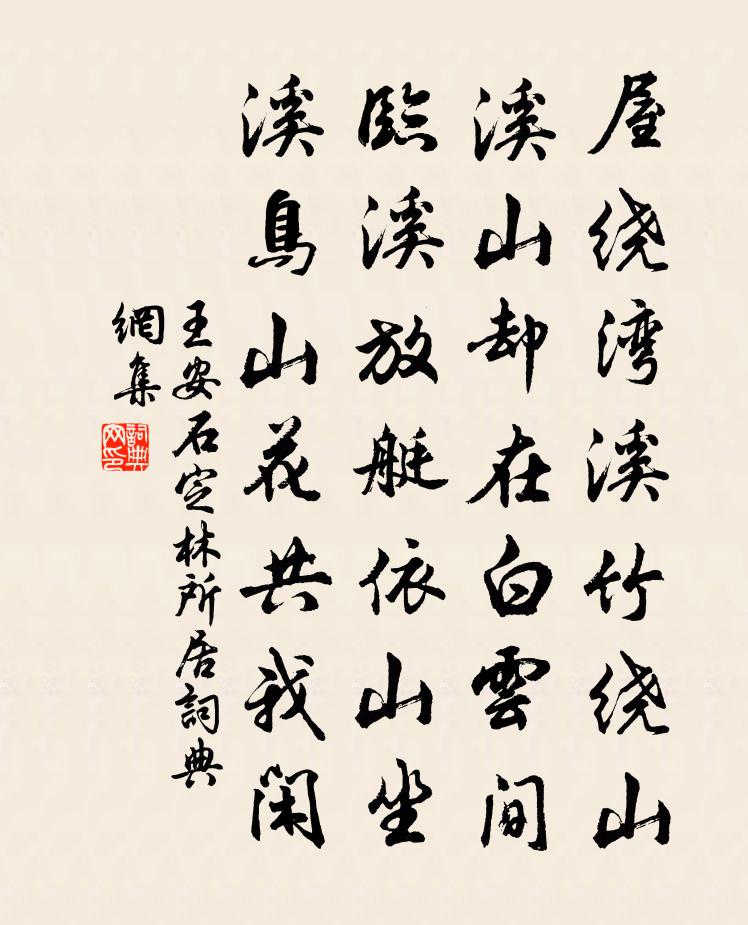 屋绕湾溪竹绕山
溪山却在白雲间
臨溪放艇依山坐
溪鳥山花共我閑
王安石定林所居詞典
網集
詞典
网印